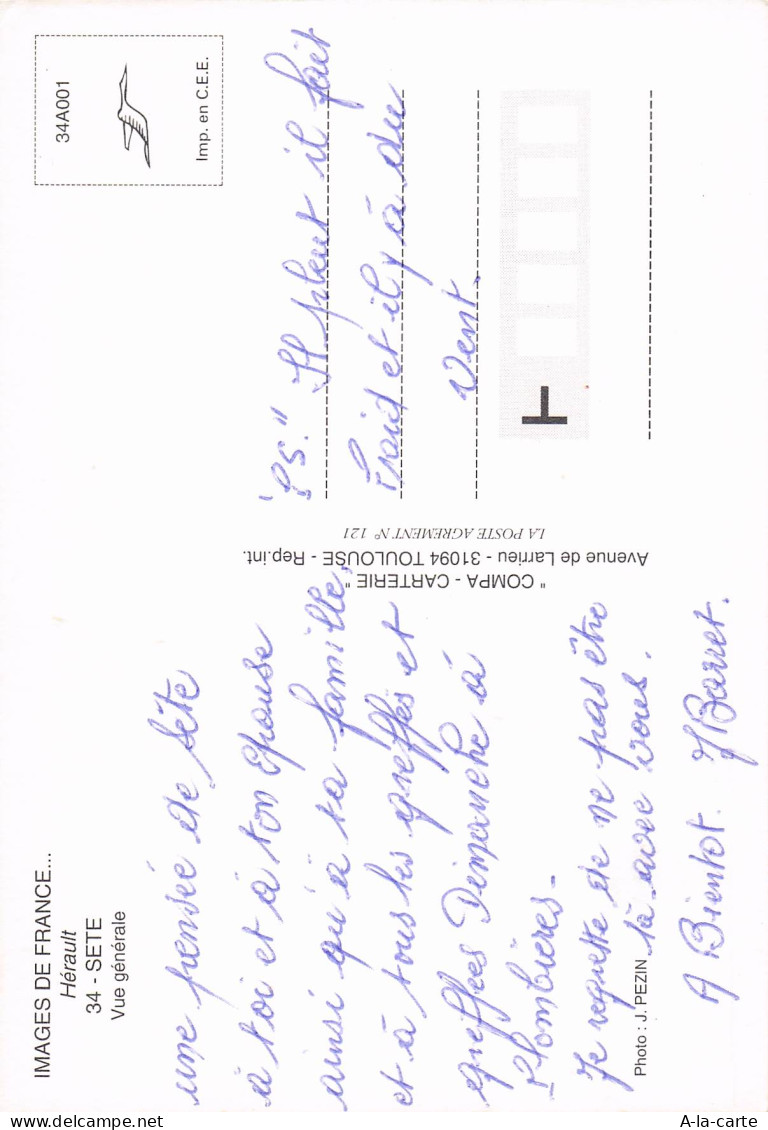 IMAGES DE FRANCE...
Hérault
34 - SETE
Vue générale
une pensée de Sète
à toi et à ton épouse
ainsi qu'à ta famille,
et à tous les greffés et
greffées Dimanche à
Plombières -
Je regrette de ne pas être
là avec vous.
A Bientot. J Barret.
Photo : J. PEZIN
" COMPA - CARTERIE "
Avenue de Larrieu - 31094 TOULOUSE - Rep.int.
LA POSTE AGREMENT N° 121
34A001
Imp. en C.E.E.
"PS." Il pleut il fait
Froid et il y à du
vent.
T
A-la-carte